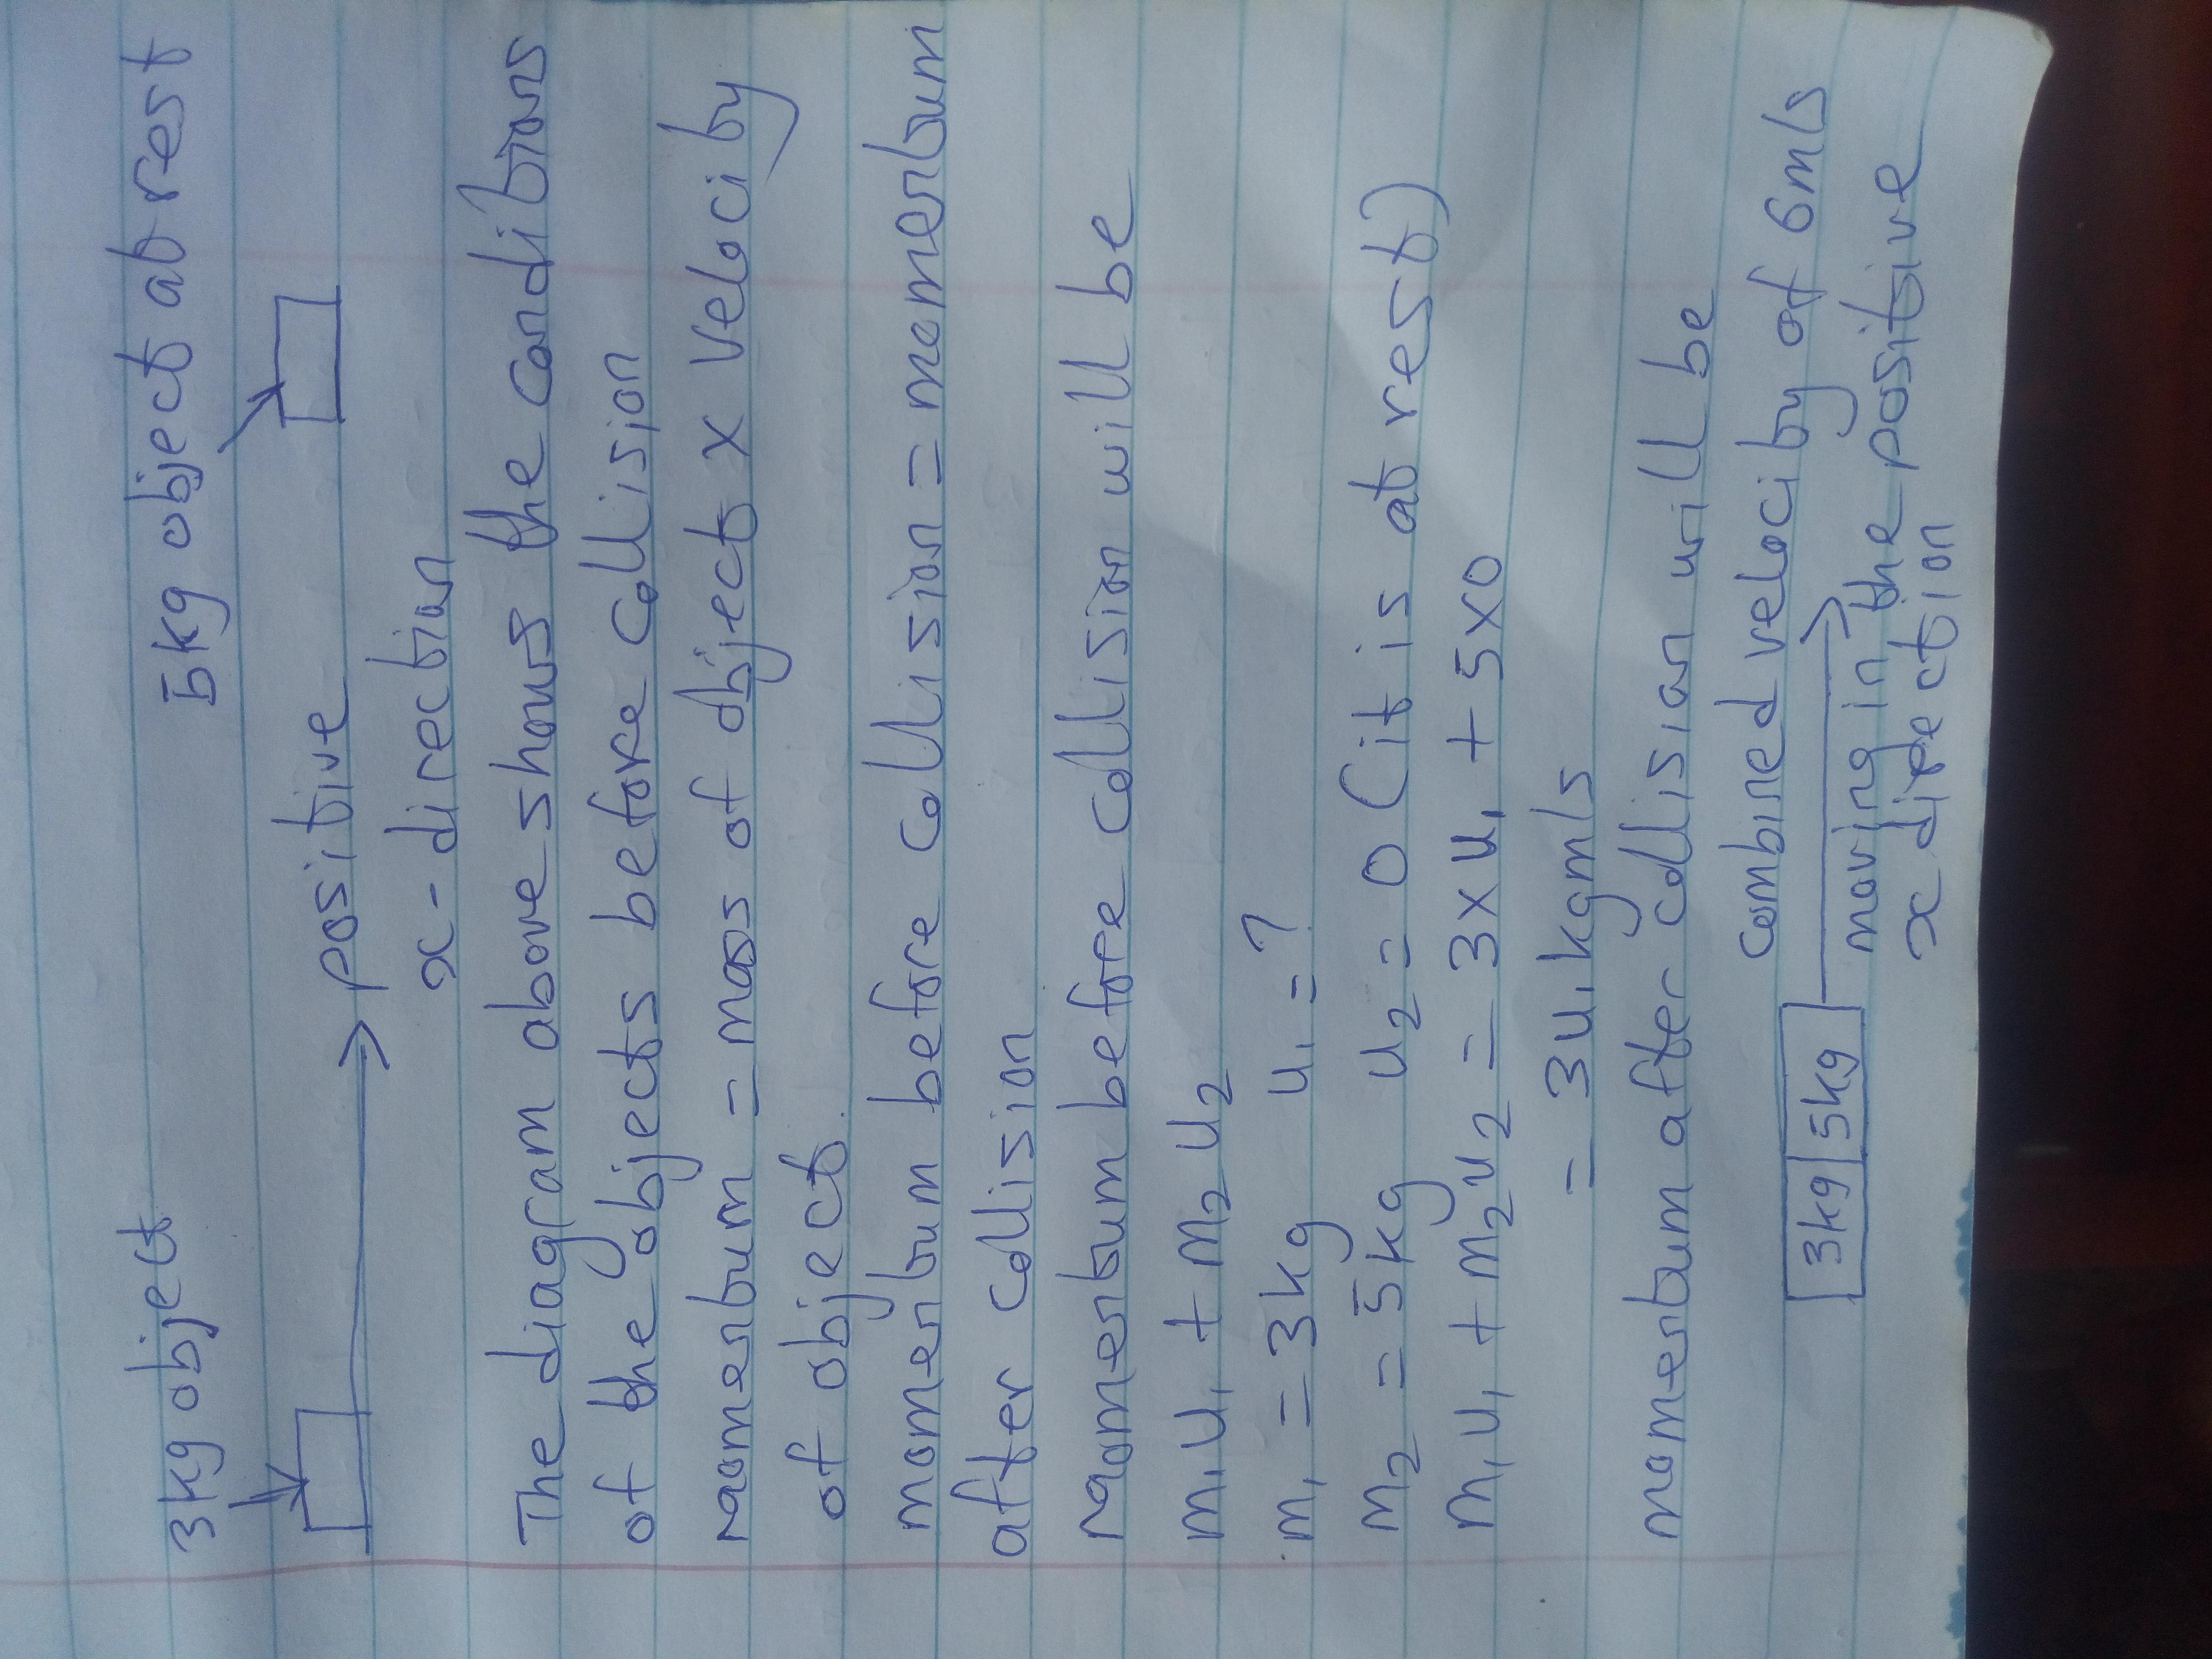 3kg object 5kg object at rest
positive
x-direction
The diagram above shows the conditions
of the objects before collision
momentum = mass of object x velocity
of object.
momentum before collision = momentum
after collision
momentum before collision will be
m₁u₁ + m₂u₂
m₁ = 3kg u₁ = ?
m₂ = 5kg u₂ = 0 (it is at rest)
m₁u₁ + m₂u₂ = 3xu₁ + 5x0
= 3u₁kgm/s
momentum after collision will be
combined velocity of 6m/s
3kg 5kg
moving in the positive
x direction